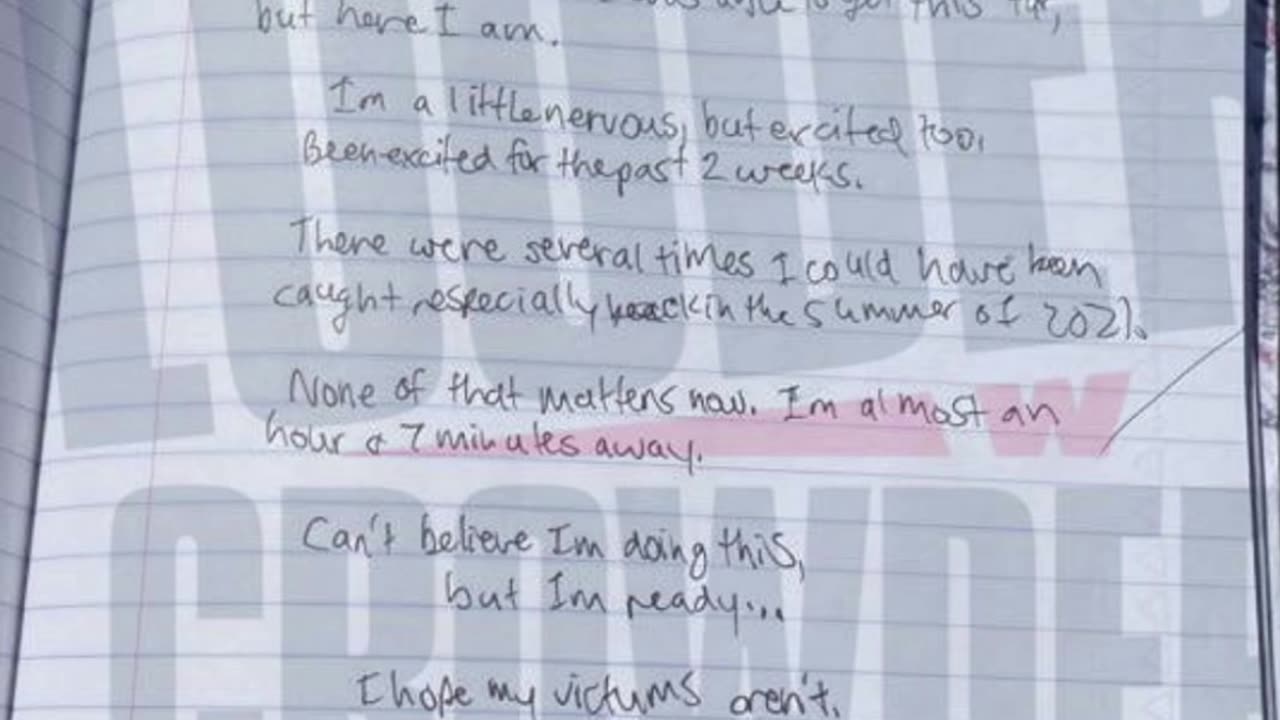 this far,
but here I am.
Im a little nervous, but excited too.
Been excited for the past 2 weeks.
There were several times I could have been
caught, especially back in the summer of 2021.
None of that matters now. Im almost an
hour & 7 minutes away.
Can't believe Im doing this,
but Im ready...
I hope my victums aren't.
LOUDER
W
CROWDE